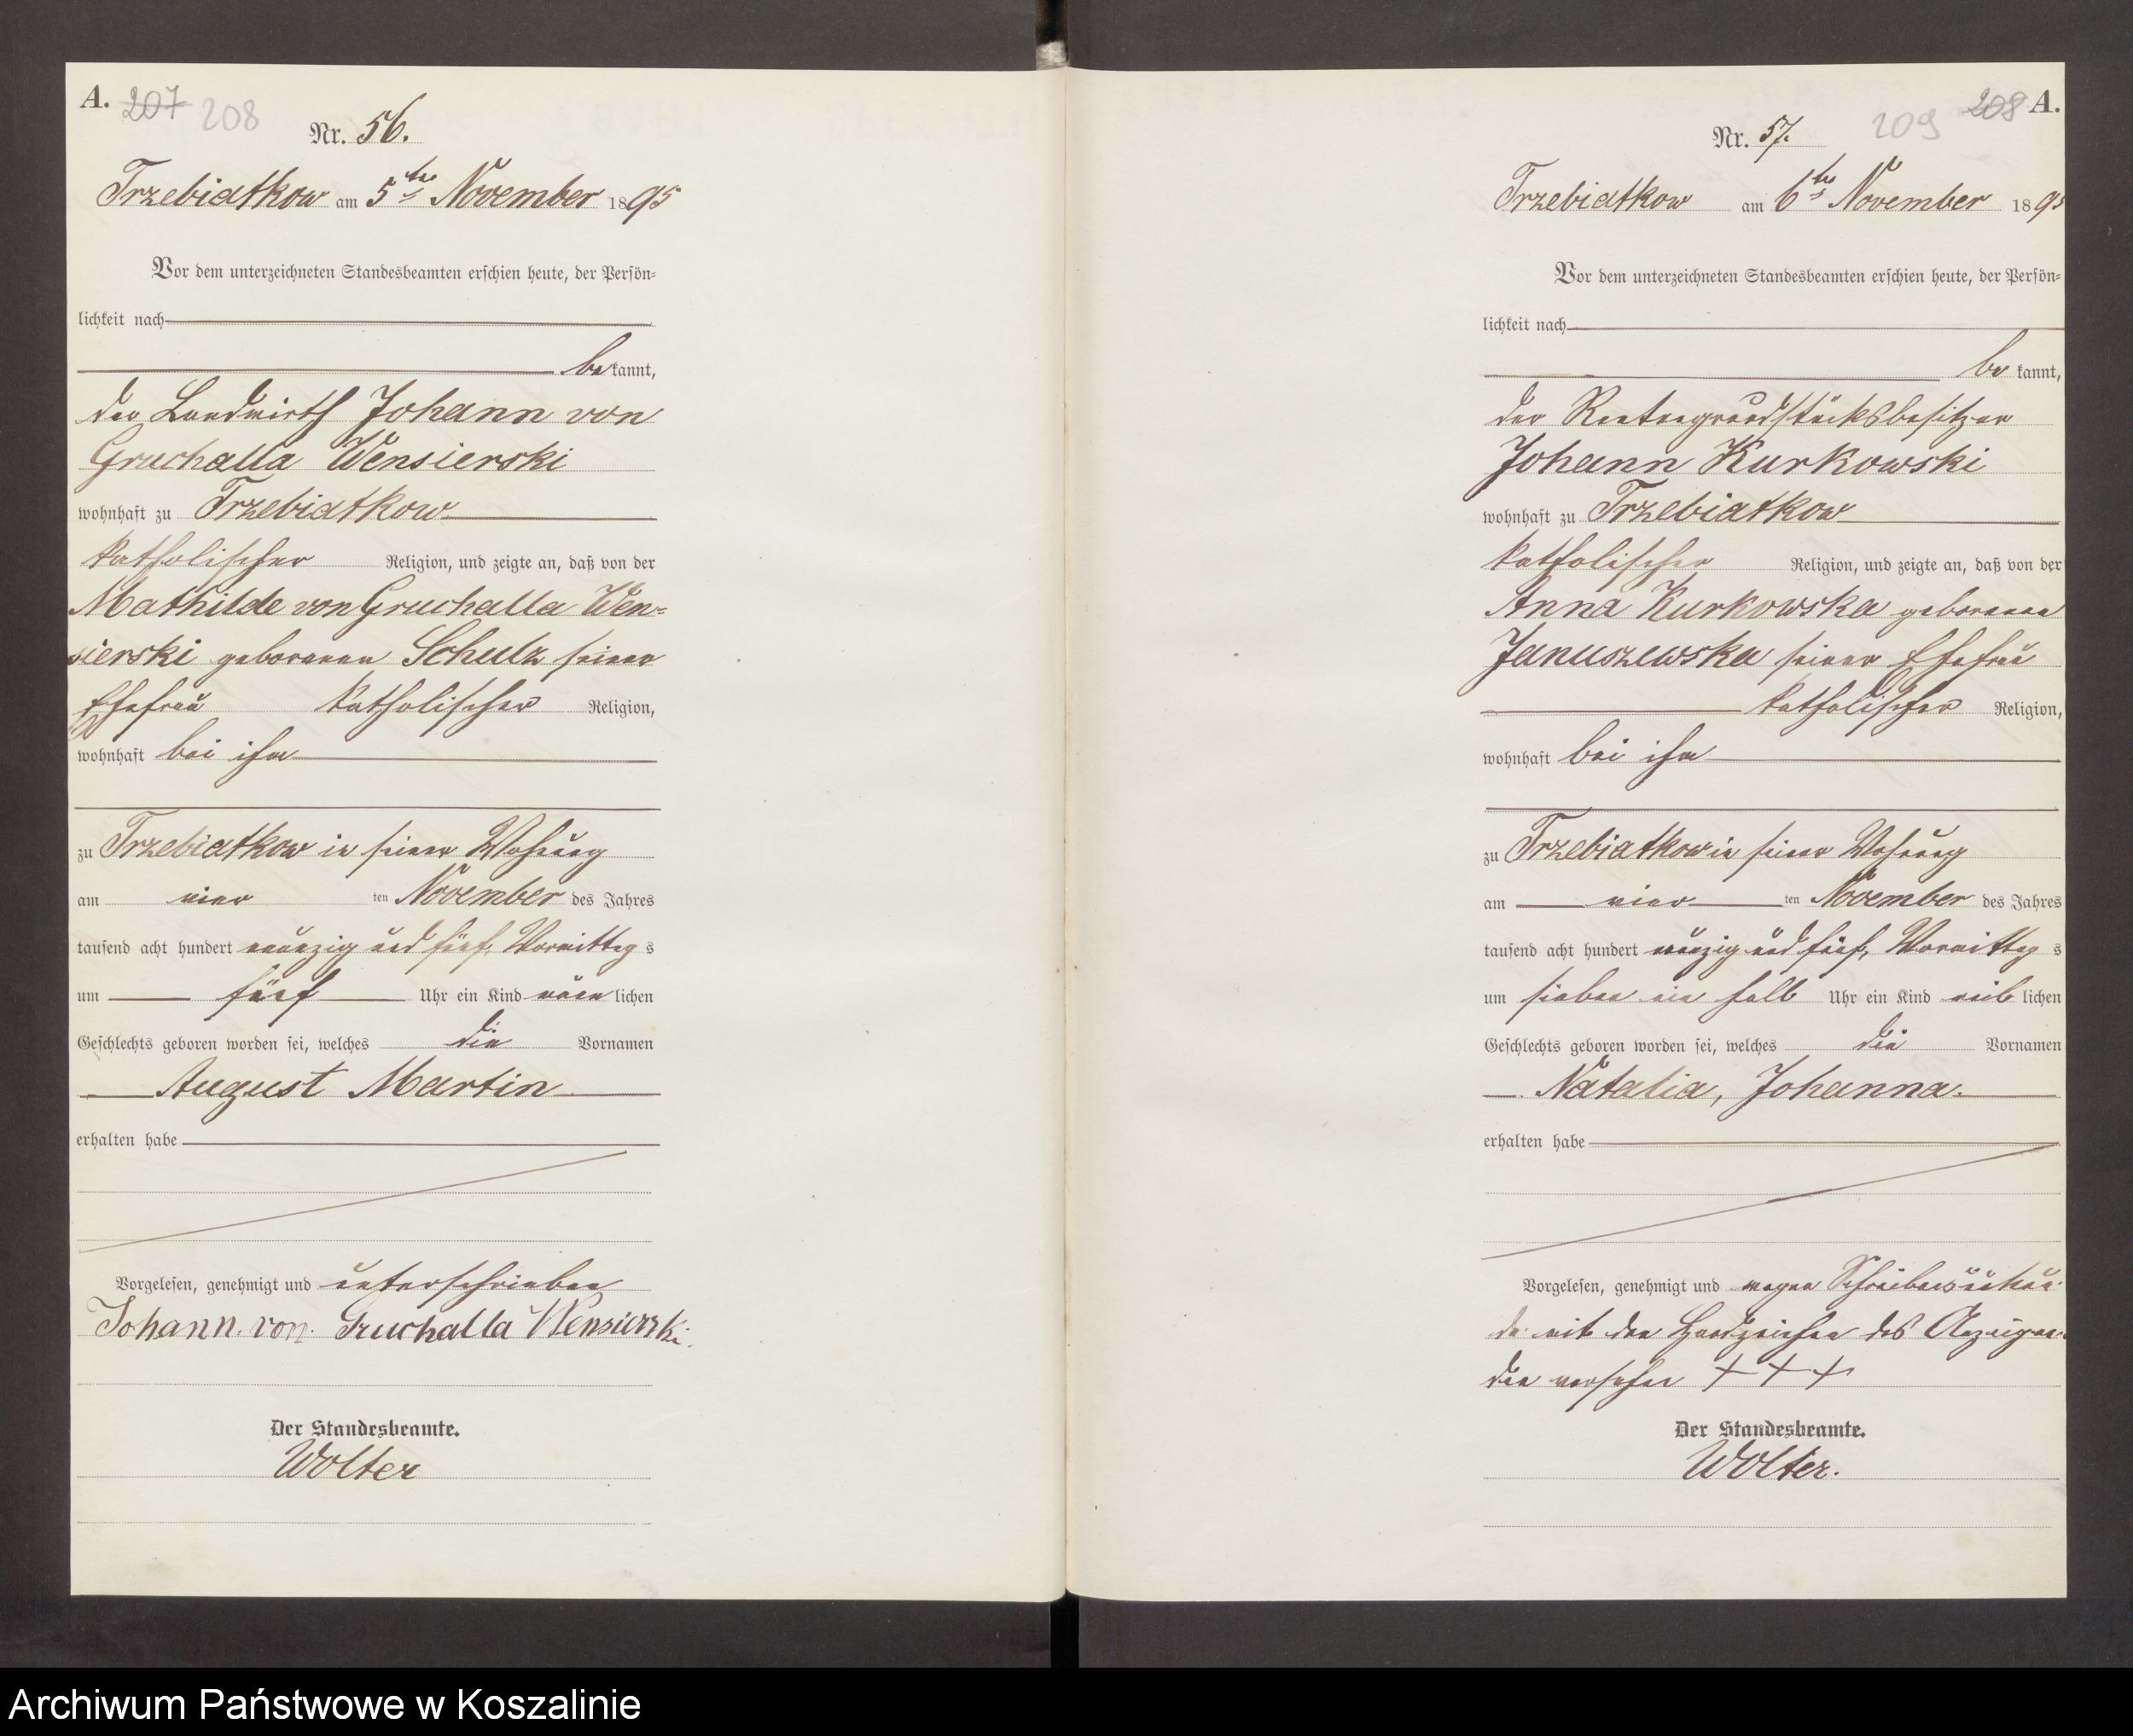 A. 207 208
Nr. 56.
Trzebiatkow am 5ten November 1895
Vor dem unterzeichneten Standesbeamten erschien heute, der Persön-
lichkeit nach
bekannt,
der Landwirth Johann von
Gruchalla Wensierski
wohnhaft zu Trzebiatkow
katholischer Religion, und zeigte an, daß von der
Mathilde von Gruchalla Wen-
sierski geborenen Schulz seiner
Ehefrau katholischer Religion,
wohnhaft bei ihm
zu Trzebiatkow in seiner Wohnung
am vier ten November des Jahres
tausend acht hundert neunzig und fünf, Vormittag s
um fünf Uhr ein Kind männlichen
Geschlechts geboren worden sei, welches die Vornamen
August Martin
erhalten habe
Vorgelesen, genehmigt und unterschrieben
Johann. von. Gruchalla Wensierski.
Der Standesbeamte.
Wolter
209 208 A.
Nr. 57.
Trzebiatkow am 6ten November 1895
Vor dem unterzeichneten Standesbeamten erschien heute, der Persön-
lichkeit nach
bekannt,
der Rentengrundstücksbesitzer
Johann Kurkowski
wohnhaft zu Trzebiatkow
katholischer Religion, und zeigte an, daß von der
Anna Kurkowska geborenen
Januszewska seiner Ehefrau
katholischer Religion,
wohnhaft bei ihm
zu Trzebiatkow in seiner Wohnung
am vier ten November des Jahres
tausend acht hundert neunzig und fünf, Vormittag s
um sieben ein halb Uhr ein Kind weiblichen
Geschlechts geboren worden sei, welches die Vornamen
Natalia, Johanna.
erhalten habe
Vorgelesen, genehmigt und wegen Schreibensunkun-
de mit den Handzeichen des Anzeigen-
den versehen + + +
Der Standesbeamte.
Wolter.
Archiwum Państwowe w Koszalinie